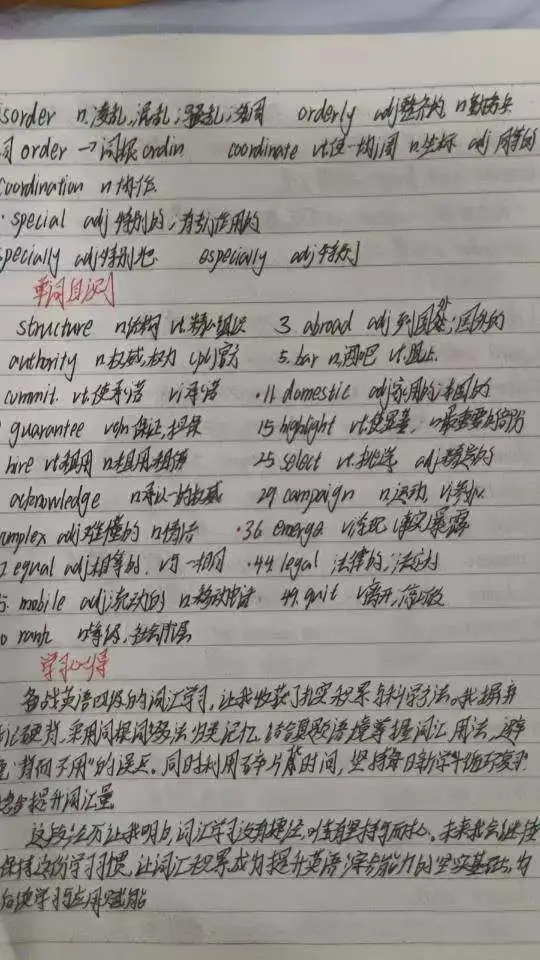 sorder n.凌乱,混乱;骚乱; orderly adj整齐的 n勤务兵
词order→词根ordin coordinate vt使一协调 n.坐标 adj 同等的
coordination n协作.
special adj特别的,有专门作用的
specially adj特别地. especially adj特别
单词自测
structure n结构 vt.精心组织 3. abroad adj到国外;国外的
authority n.权威,权力 (pl)官方 5. bar n.酒吧 vt.阻止
commit. vt.使承诺 vi承诺 ·11 domestic adj家用的;本国的
guarantee v&n保证,担保 15 highlight vt.使显著, n最重要的部分
hire vt租用 n租用,租借 25 select vt.挑选 adj精
acknowledge n承认一的权威 29 campaign n运动 vi参加.
omplex adj难懂的 n情结 ·36 emerge vi.出现 (事实)暴露
equal adj相等的. vt与一相同 ·44 legal 法律的,法定的
mobile adj流动的 n.移动电话. 49. quit v离开,停止做
rank n等级,社会阶层
学习心得
备战英语四级的词汇学习,让我收获了扎实积累与科学方法。我摒弃
记硬背,采用同根词场法归类记忆.结合真题语境掌握词汇用法,避
"背而不用"的误区.同时利用碎片时间,坚持每日新学+循环复习
稳步提升词汇量
这段经历让我明白,词汇学习没有捷径.唯有坚持. 未来我会继续
保持这份学习习惯,让词汇积累成为提升英语综合能力的坚实基础,为
后续学习与应用赋能